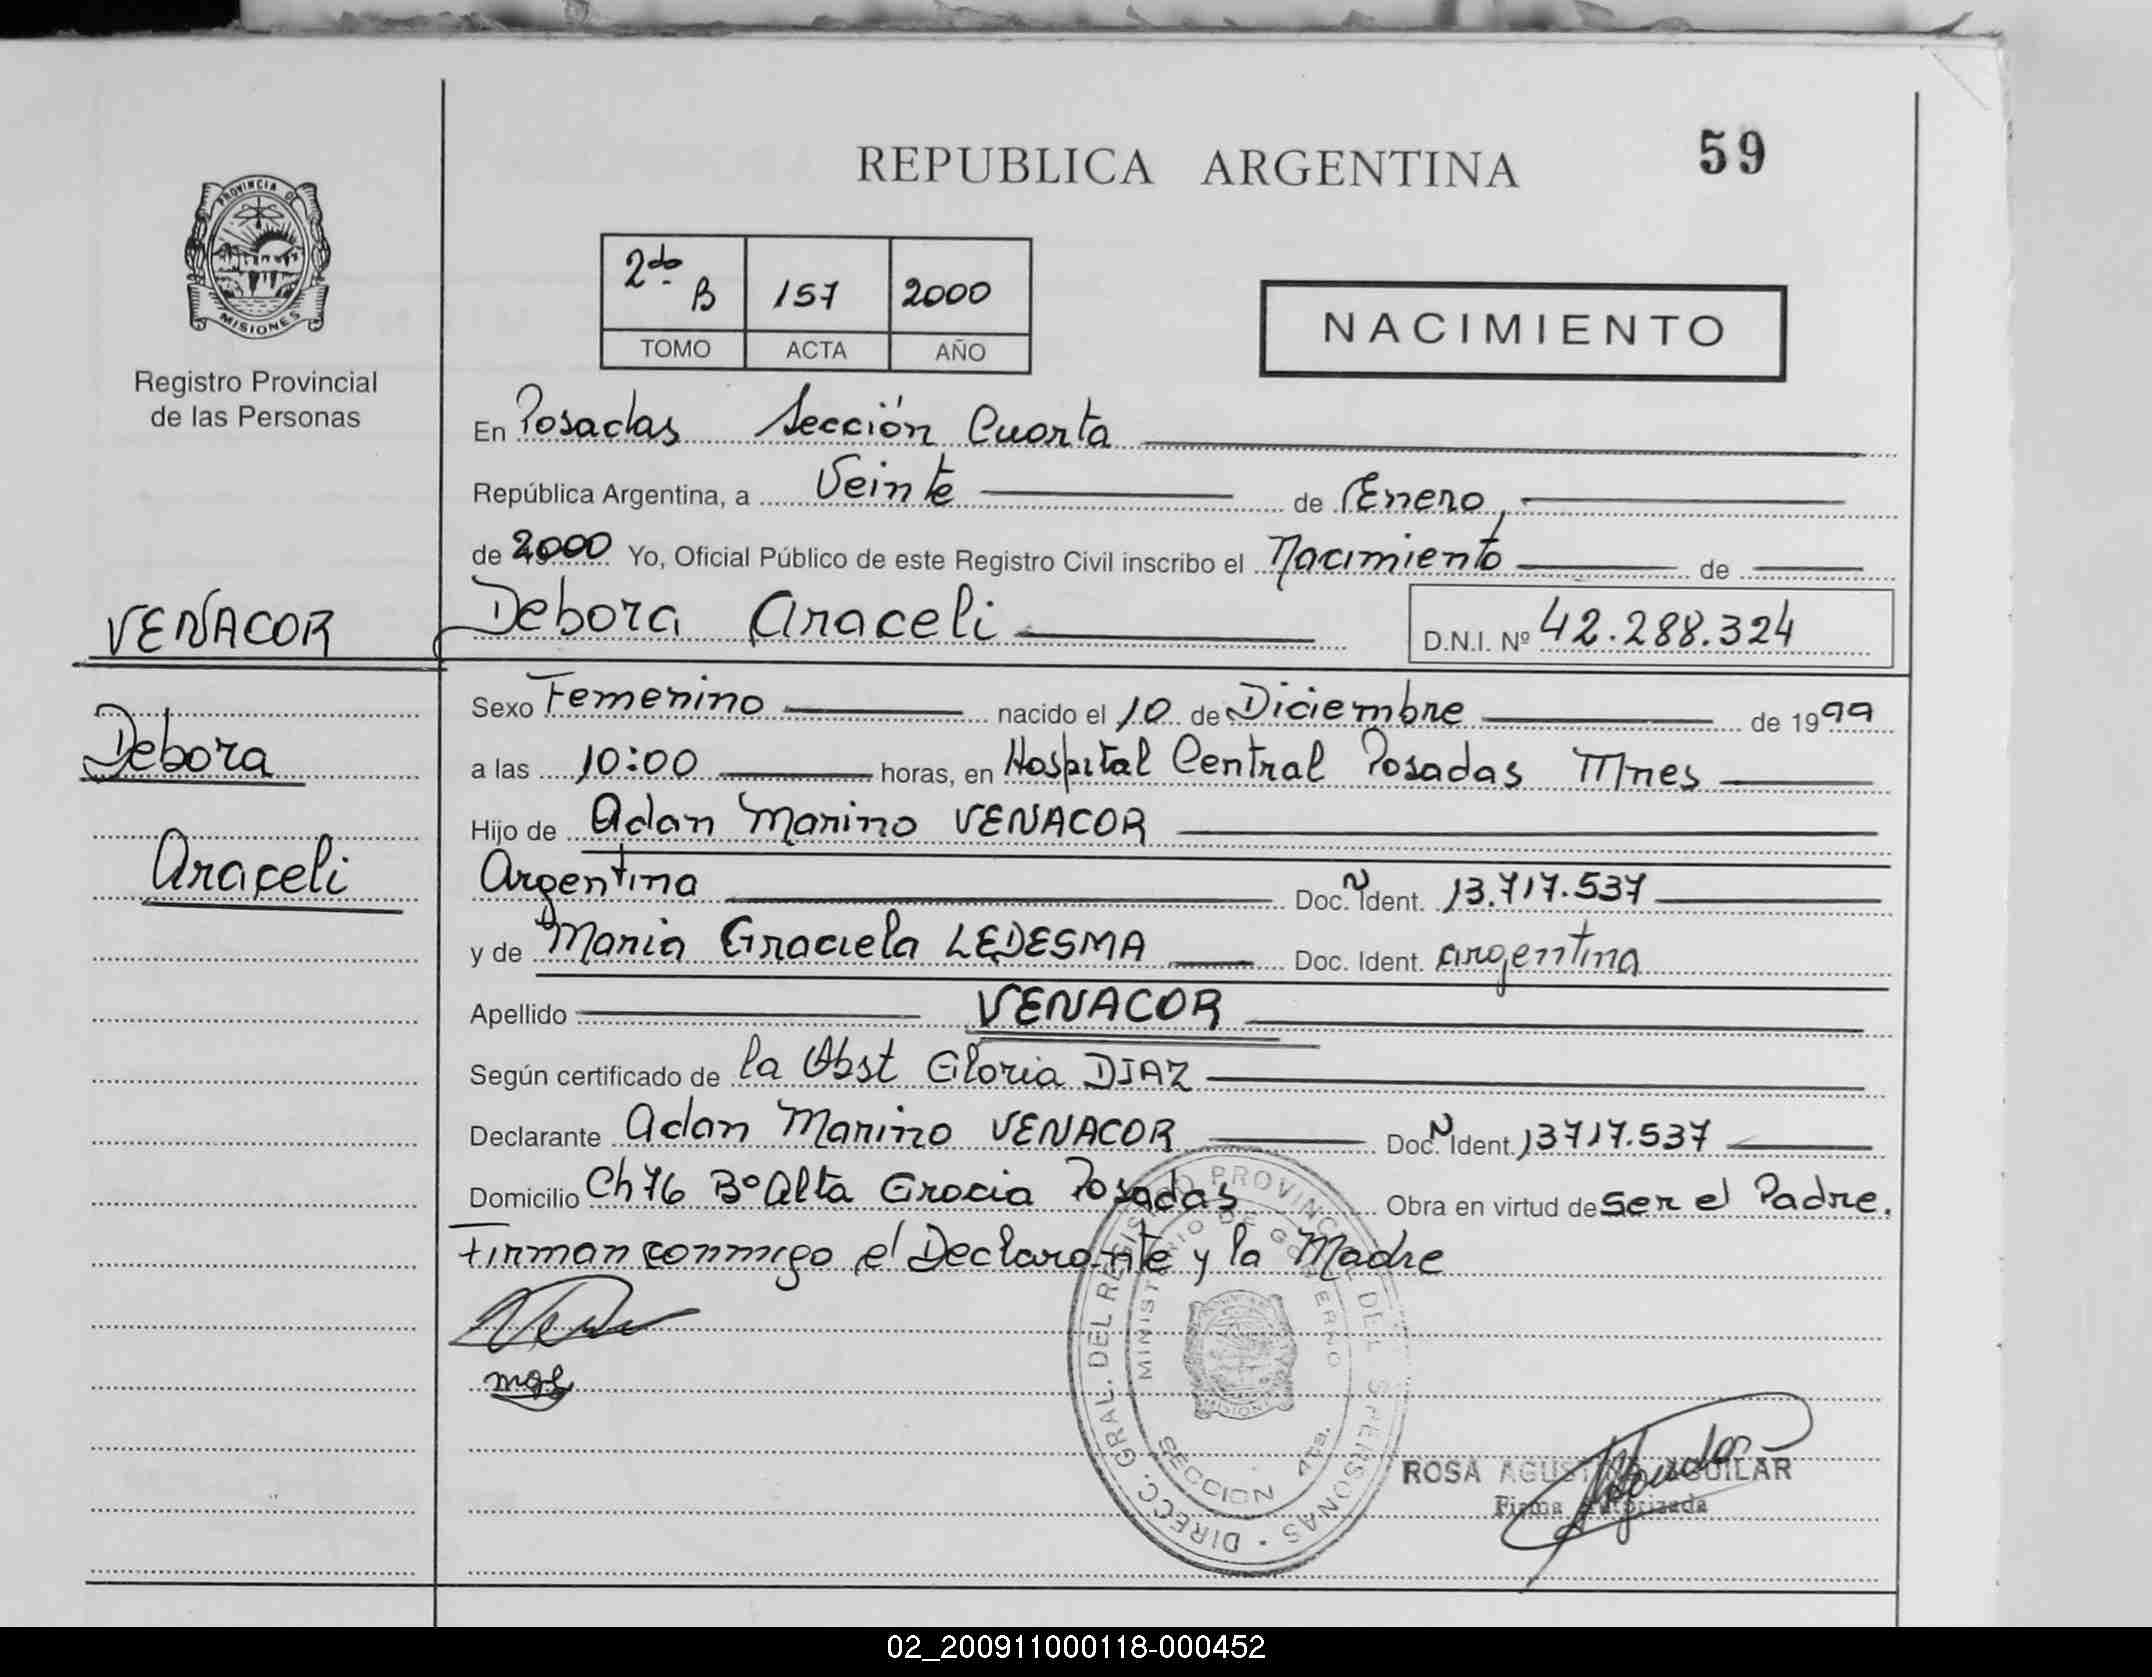 59
REPUBLICA ARGENTINA
PROVINCIA DE
MISIONES
Registro Provincial
de las Personas
2do B 157 2000
TOMO ACTA AÑO
NACIMIENTO
En Posadas Sección Cuarta
República Argentina, a Veinte de Enero,
de 2000 Yo, Oficial Público de este Registro Civil inscribo el Nacimiento de
VENACOR
Debora Araceli
D.N.I. Nº 42.288.324
Debora
Araceli
Sexo Femenino nacido el 10 de Diciembre de 1999
a las 10:00 horas, en Hospital Central Posadas Mnes
Hijo de Adan Marino VENACOR
Argentina Doc. N Ident. 13.717.537
y de Maria Graciela LEDESMA Doc. Ident. argentina
Apellido VENACOR
Según certificado de la Obst Gloria DIAZ
Declarante Adan Marino VENACOR Doc. N Ident. 13717.537
Domicilio Ch 76 Bº Alta Gracia Posadas Obra en virtud de ser el Padre.
Firman conmigo el Declarante y la Madre
mgl
DIRECC. GRAL. DEL REGISTRO PROVINCIAL DE LAS PERSONAS
MINISTERIO DE GOBIERNO
MISIONES
SECCION 4ta.
ROSA AGUSTINA AGUILAR
Firma Autorizada
02_200911000118-000452